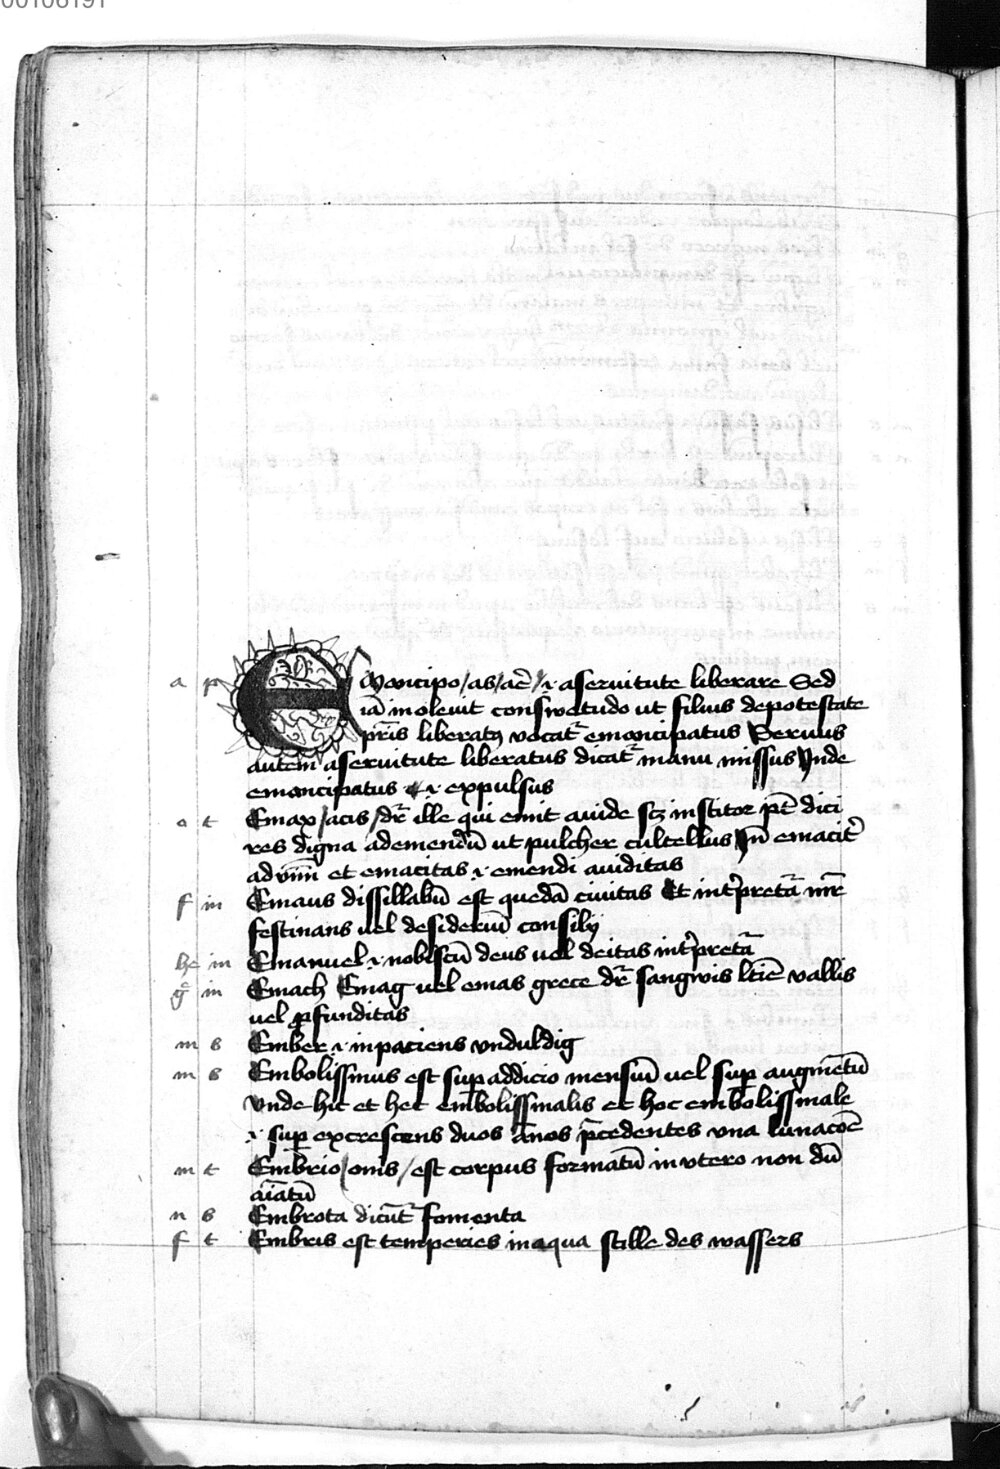 00106191
a p Emancipo / as / aē / .i. aseruitute liberare Sed
iā inoleuit conswetudo ut filius depotestate
pr̄is liberatꝰ vocat᷑ emancipatus Seruus
autem aseruitute liberatus dicat᷑ manu missus Vnde
emancipatus .i. expulsus
o t Emax / acis / dr̄ ille qui emit auide scꝫ institor pt̄ dici
res digna ademendū ut pulcher cultellus Jn̄ emacit᷑
adūm et emacitas .i. emendi auiditas
f in Emaus dissillabū est quedā ciuitas Et int᷑pretat᷑ mr̄
festinans uel desideriū consilij
he in Emanuel .i. nobiscū deus uel deitas int᷑pretat᷑
g in Emach Emag uel emas grece dr̄ sangwis lt̄ie vallis
uel ꝓfunditas
m s Ember .i. inpaciens vnduldig
m s Embolissimus est suꝑaddicio mensiū uel suꝑ augmētū
Vnde hic et hec embolissmalis et hoc embolissmale
.i. suꝑ excrescens duos annos p̄cedentes vna lunacōe
m t Embrio / onis / est corpus formatū in vtero non dū
aīatū
n s Embrota dicūt᷑ fomenta
f t Embris est temperies in aqua stille des wassers